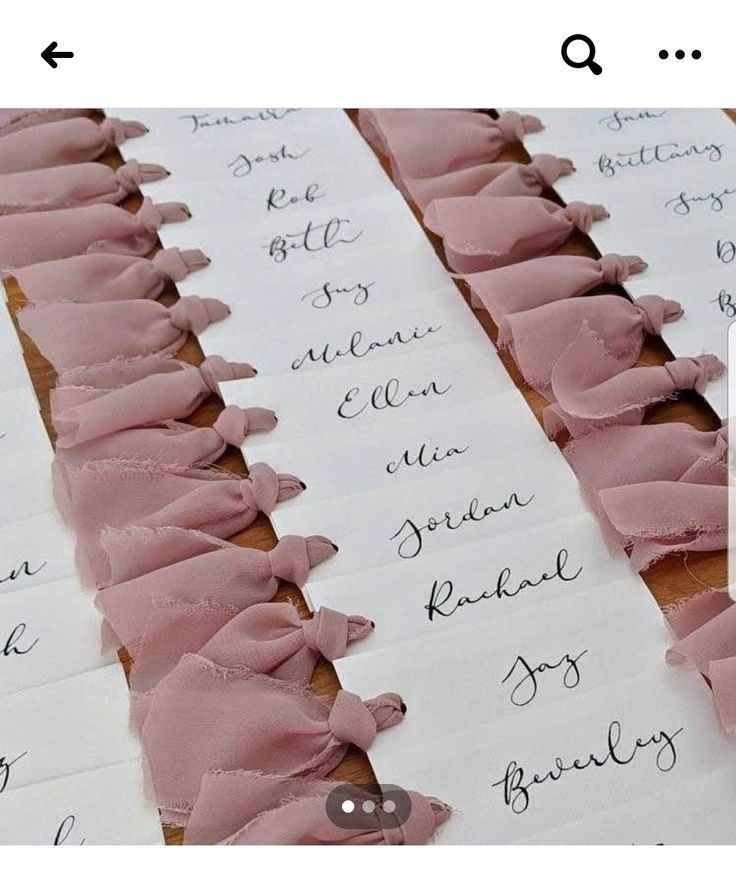 Tamarra
Josh
Rob
Beth
Suz
Melanie
Ellen
Mia
Jordan
Rachael
Jaz
Beverley
Sam
Brittany
Suze